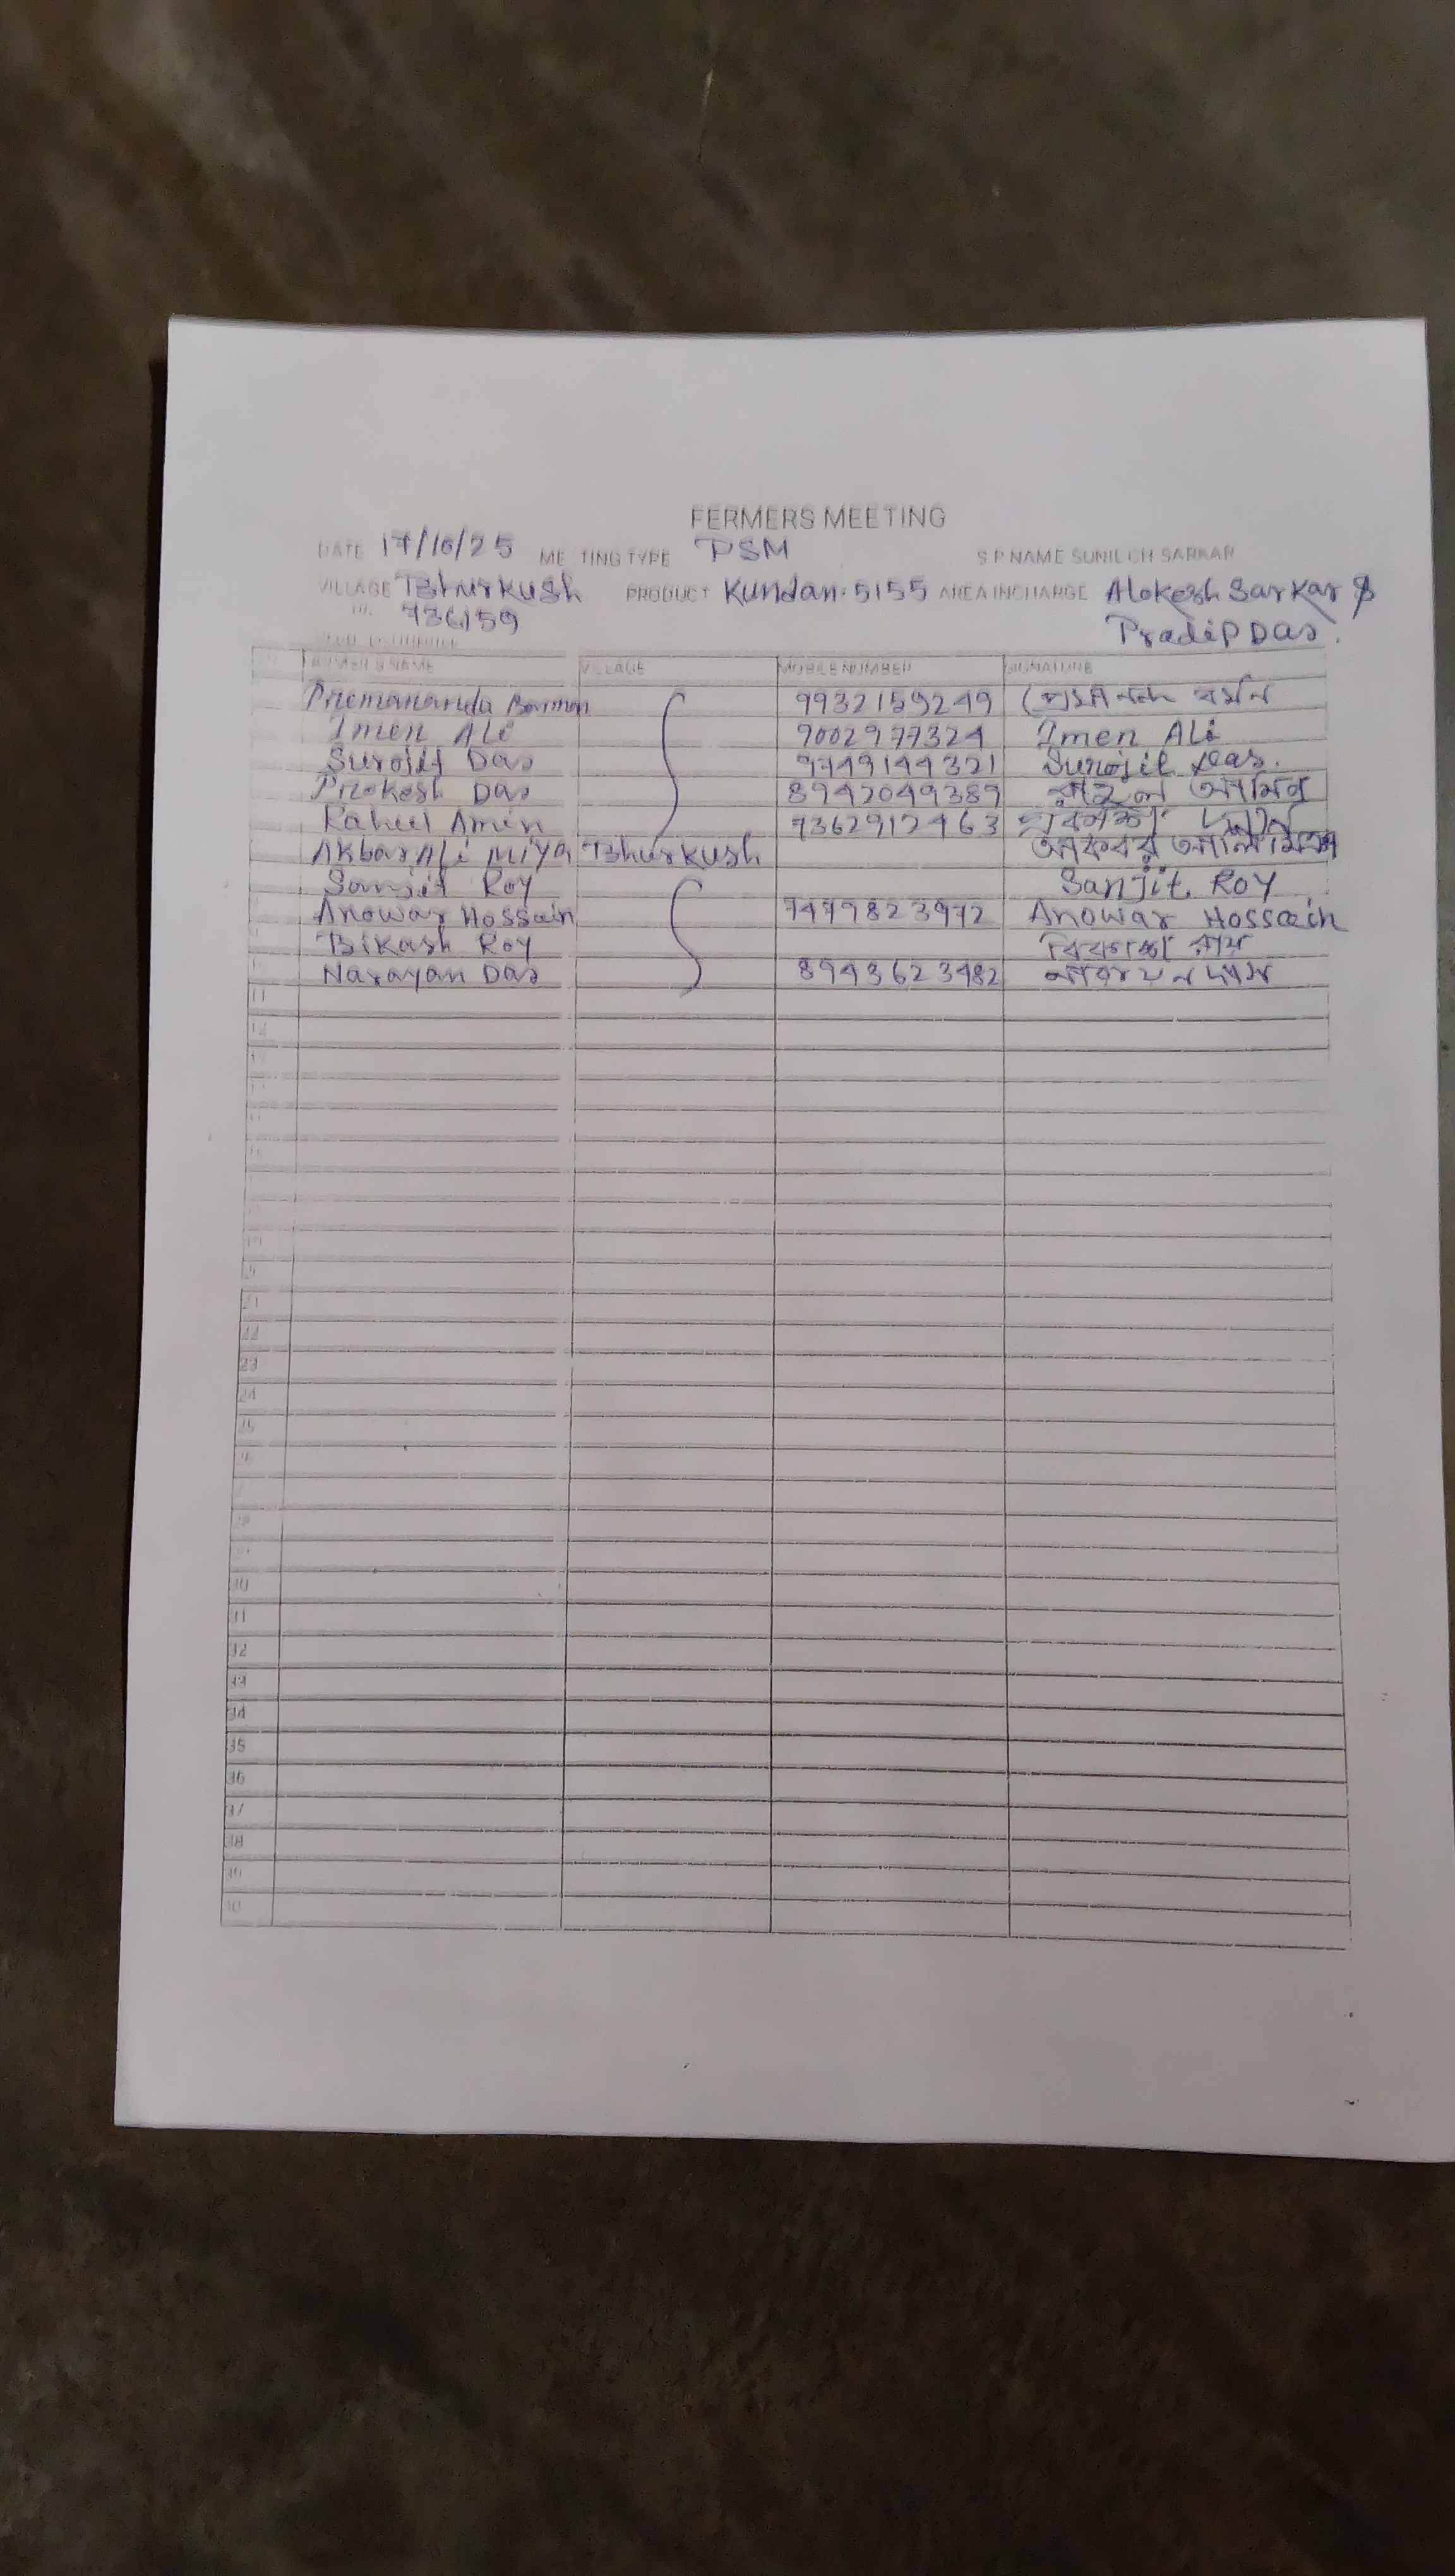 FERMERS MEETING
DATE 17/10/25 MEETING TYPE PSM S P NAME SUNIL CH SARKAR
VILLAGE Bhurkush PRODUCT Kundan-5155 AREA INCHARGE Alokesh Sarkar &
736159 Pradip Das.
FARMER'S NAME VILLAGE MOBILE NUMBER SIGNATURE
Premananda Barman 9932159249 বর্মন
Imen Ali 9002977324 Imen Ali
Surojit Das 9749144321 Surojit Das.
Prokesh Das 8942049389 রাহুল আমিন
Rahul Amin 7362912463
Akbar Ali Miya Bhurkush আকবর আলি মিঞা
Sanjit Roy Sanjit Roy
Anowar Hossain 7479823972 Anowar Hossain
Bikash Roy বিকাশ রায়
Narayan Das 8943623482 নারায়ন দাস
11
12
23
24
30
32
33
34
35
36
37
38
39
40